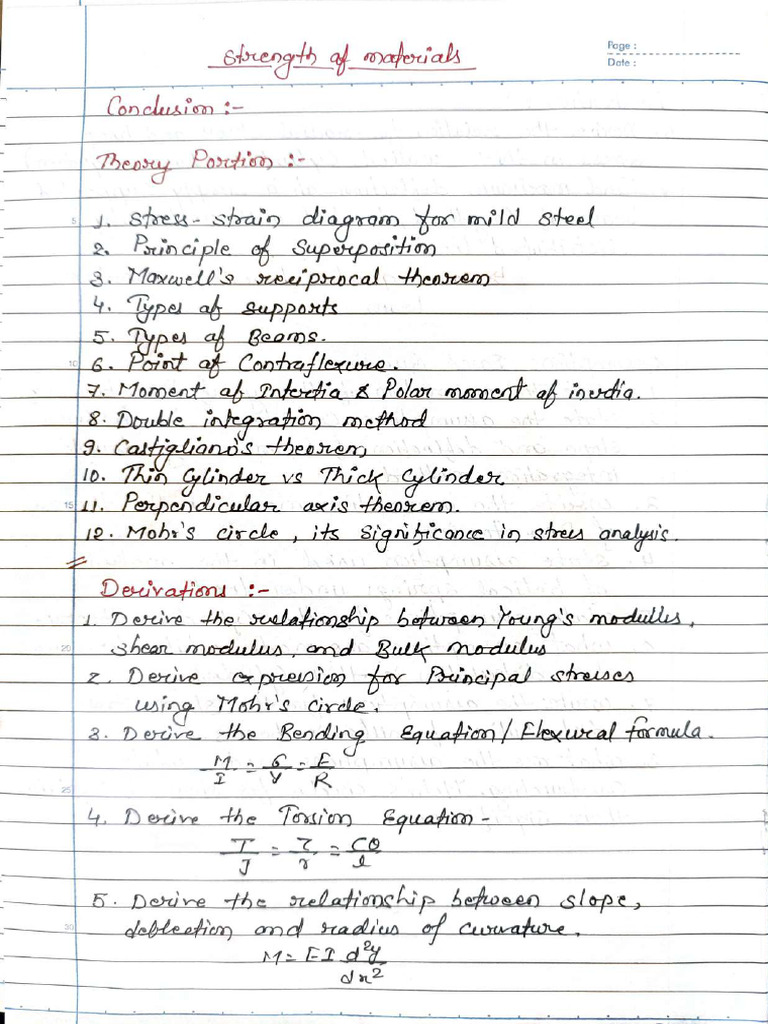 Page :
Date :
Strength of materials
Conclusion :-
Theory Portion :-
5 1. Stress-strain diagram for mild steel
2. Principle of Superposition
3. Maxwell's reciprocal theorem
4. Types of supports
5. Types of Beams.
10 6. Point of Contraflexure.
7. Moment of Intertia & Polar moment of inerdia.
8. Double integration method
9. Castigliano's theorem
10. Thin Cylinder vs Thick Cylinder
15 11. Perpendicular axis theorem.
12. Mohr's circle, its significance in stress analysis.
Derivations :-
1. Derive the relationship between Young's modullus,
20 shear modulus, and Bulk modulus
2. Derive expression for Principal stresses
using Mohr's circle.
3. Derive the Bending Equation/Flexural formula.
M/I = σ/y = E/R
25
4. Derive the Torsion Equation -
T/J = τ/r = Cθ/l
5. Derive the relationship between slope,
30 deflection and radius of curvature.
M = EI d²y/dx²